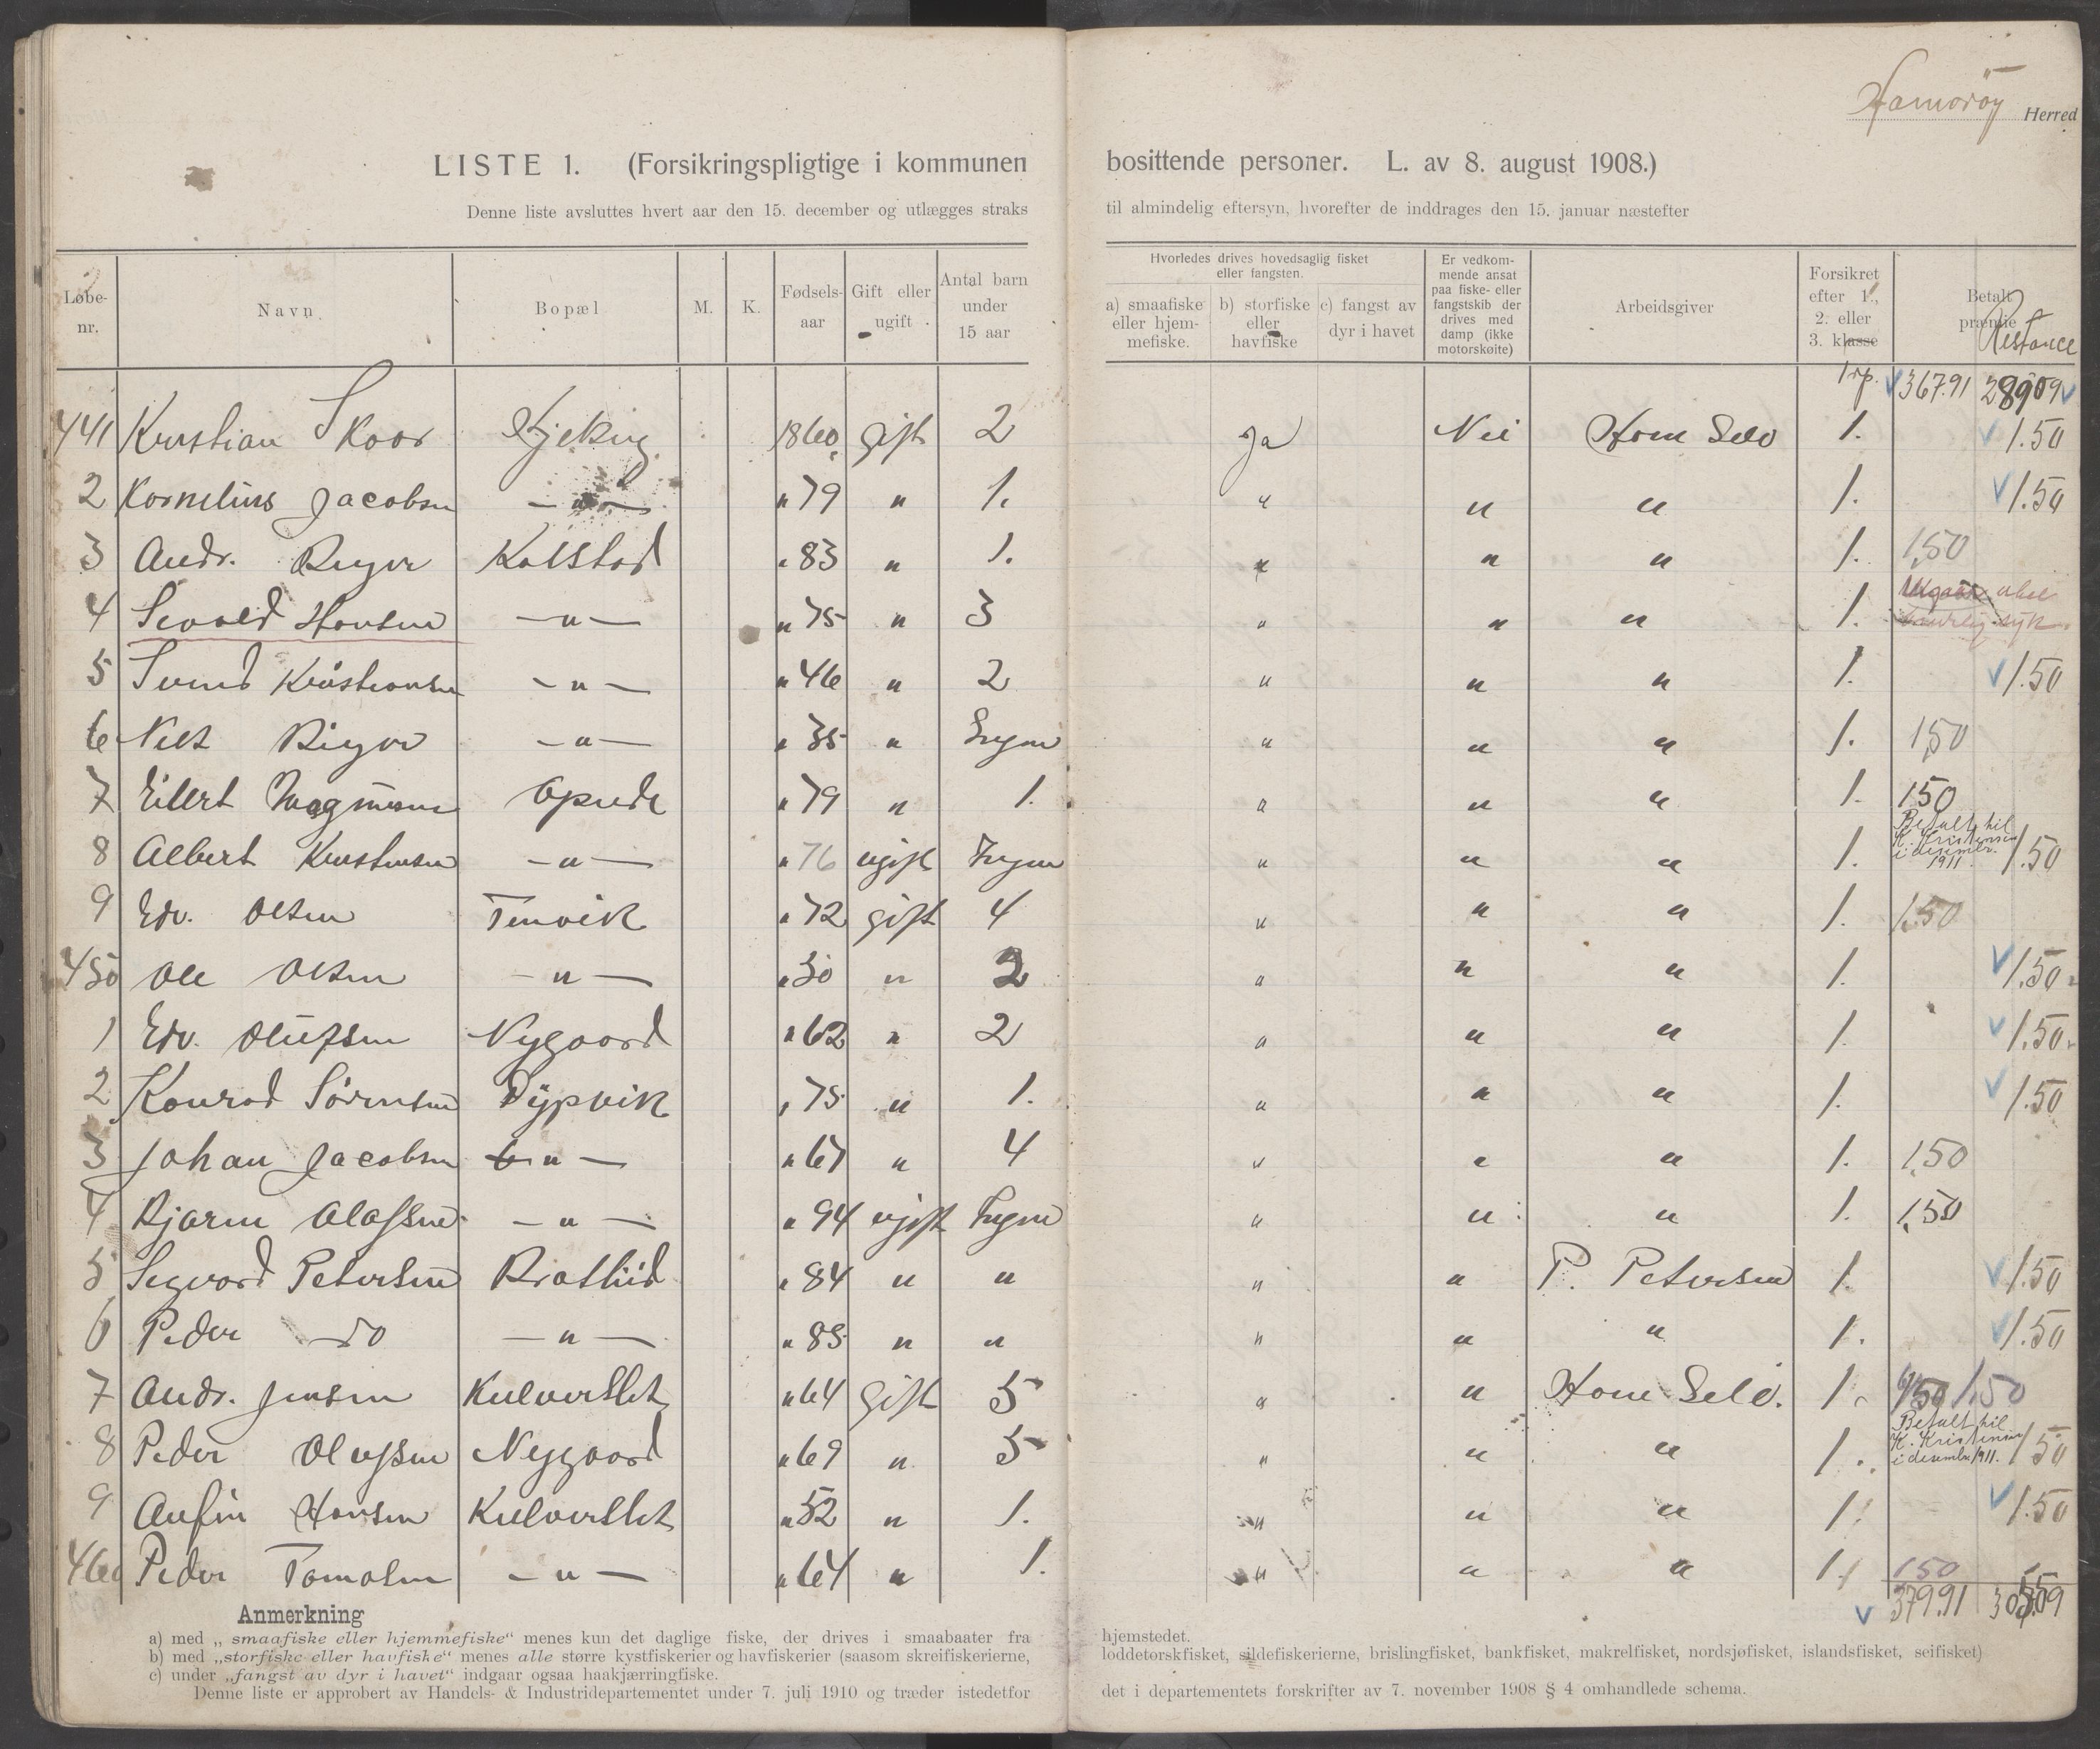 Hamarøy Herred
LISTE 1. (Forsikringspligtige i kommunen bosittende personer. L. av 8. august 1908.)
Denne liste avsluttes hvert aar den 15. december og utlægges straks til almindelig eftersyn, hvorefter de inddrages den 15. januar næstefter
Løbe-nr. Navn Bopæl M. K. Fødsels-aar Gift eller ugift Antal barn under 15 aar Hvorledes drives hovedsaglig fisket eller fangsten. a) smaafiske eller hjem-mefiske. b) storfiske eller havfiske c) fangst av dyr i havet Er vedkom-mende ansat paa fiske- eller fangstskib der drives med damp (ikke motorskøite) Arbeidsgiver Forsikret efter 1., 2. eller 3. klasse Betalt præmie Restance
Trp. 367.91 289.09
441 Kristian Skoor 1860 gift 2 Ja Nei Ham Selv 1. 1.50
2 Kornelius Jacobsen — " — " 79 " 1. " " " 1. 1.50
3 Andr. Kolstad " 83 " 1. " " " 1. 1,50
4 Sevald Hansen — " — " 75 " 3 " " " 1.
5 Svend Kristiansen — " — " 46 " 2 " " " 1. 1.50
6 Nils — " — " 35 " Ingen " " " 1. 1,50
7 Eilert Magnusen " 79 " 1. " " " 1. 1 50
8 Albert Kristensen — " — " 76 ugift Ingen " " " 1. Betalt til K. Kristensen i desember 1911. 1.50
9 Edv. Olsen Tenvik " 72 gift 4 " " " 1. 1.50
450 Ole Olsen — " — " 50 " 2 " " " 1. 1.50
1 Edv. Olufsen Nygaard " 62 " 2 " " " 1. 1.50
2 Konrad Sörensen Dypvik " 75 " 1. " " " 1. 1.50
3 Johan Jacobsen " — " 67 " 4 " " " 1. 1,50
4 Bjarne Olafsen — " — " 94 ugift Ingen " " " 1. 1,50
5 Segvard Petersen Bratlid " 84 " " " " P. Petersen 1. 1.50
6 Peder do — " — " 85 " " " " " 1. 1.50
7 Andr. Jensen Kulverslet " 64 gift 5 " " Ham Selv. 1. 1,50
8 Peder Olufsen Nygaard " 69 " 5 " " " 1. Betalt til K. Kristensen i desembr. 1911. 1 50
9 Anfin Hansen Kulverslet " 52 " 1. " " " 1. 1.50
460 Peder Tomasen — " — " 64 " 1. " " " 1. 1 50
379.91
Anmerkning
a) med „smaafiske eller hjemmefiske“ menes kun det daglige fiske, der drives i smaabaater fra hjemstedet.
b) med „storfiske eller havfiske“ menes alle større kystfiskerier og havfiskerier (saasom skreifiskerierne, loddetorskfisket, sildefiskerierne, brislingfisket, bankfisket, makrelfisket, nordsjøfisket, islandsfisket, seifisket)
c) under „fangst av dyr i havet“ indgaar ogsaa haakjærringfiske.
Denne liste er approbert av Handels- & Industridepartementet under 7. juli 1910 og træder istedetfor det i departementets forskrifter av 7. november 1908 § 4 omhandlede schema.